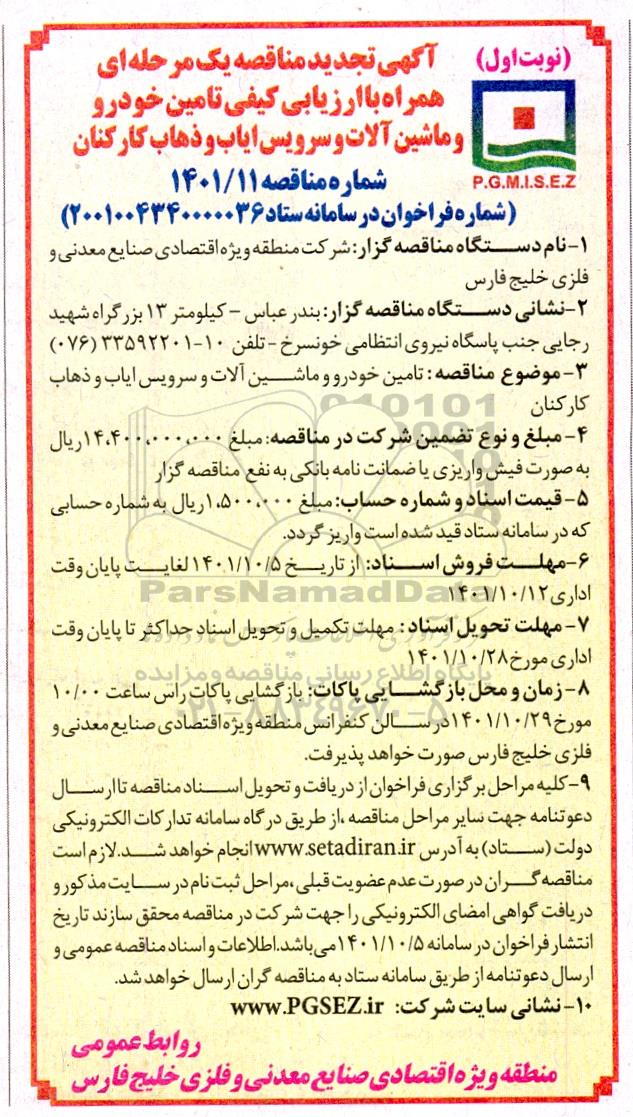 (نوبت اول)
آگهی تجدید مناقصه یک مرحله ای
همراه با ارزیابی کیفی تامین خودرو
و ماشین آلات و سرویس ایاب و ذهاب کارکنان
P.G.M.I.S.E.Z
شماره مناقصه ۱۴۰۱/۱۱
(شماره فراخوان در سامانه ستاد ۲۰۰۱۰۰۴۳۴۰۰۰۰۰۳۶)
۱-نام دستگاه مناقصه گزار: شرکت منطقه ویژه اقتصادی صنایع معدنی و
فلزی خلیج فارس
۲-نشانی دستگاه مناقصه گزار: بندر عباس – کیلومتر ۱۳ بزرگراه شهید
رجایی جنب پاسگاه نیروی انتظامی خونسرخ - تلفن ۱۰-۳۳۵۹۲۲۰۱ (۰۷۶)
۳-موضوع مناقصه: تامین خودرو و ماشین آلات و سرویس ایاب و ذهاب
کارکنان
۴-مبلغ و نوع تضمین شرکت در مناقصه: مبلغ ۱۴،۴۰۰،۰۰۰،۰۰۰ ریال
به صورت فیش واریزی یا ضمانت نامه بانکی به نفع مناقصه گزار
۵-قیمت اسناد و شماره حساب: مبلغ ۱،۵۰۰،۰۰۰ ریال به شماره حسابی
که در سامانه ستاد قید شده است واریز گردد.
۶-مهلت فروش اسناد: از تاریخ ۱۴۰۱/۱۰/۵ لغایت پایان وقت
اداری ۱۴۰۱/۱۰/۱۲
۷-مهلت تحویل اسناد: مهلت تکمیل و تحویل اسناد حداکثر تا پایان وقت
اداری مورخ ۱۴۰۱/۱۰/۲۸
۸-زمان و محل بازگشایی پاکات: بازگشایی پاکات راس ساعت ۱۰/۰۰
مورخ ۱۴۰۱/۱۰/۲۹ در سالن کنفرانس منطقه ویژه اقتصادی صنایع معدنی و
فلزی خلیج فارس صورت خواهد پذیرفت.
۹-کلیه مراحل برگزاری فراخوان از دریافت و تحویل اسناد مناقصه تا ارسال
دعوتنامه جهت سایر مراحل مناقصه ،از طریق درگاه سامانه تدارکات الکترونیکی
دولت (ستاد) به آدرس www.setadiran.ir انجام خواهد شد.لازم است
مناقصه گران در صورت عدم عضویت قبلی ،مراحل ثبت نام در سایت مذکور و
دریافت گواهی امضای الکترونیکی را جهت شرکت در مناقصه محقق سازند تاریخ
انتشار فراخوان در سامانه ۱۴۰۱/۱۰/۵ می باشد.اطلاعات و اسناد مناقصه عمومی و
ارسال دعوتنامه از طریق سامانه ستاد به مناقصه گران ارسال خواهد شد.
۱۰-نشانی سایت شرکت: www.PGSEZ.ir
روابط عمومی
منطقه ویژه اقتصادی صنایع معدنی و فلزی خلیج فارس
ParsNamadData
پایگاه اطلاع رسانی مناقصه و مزایده